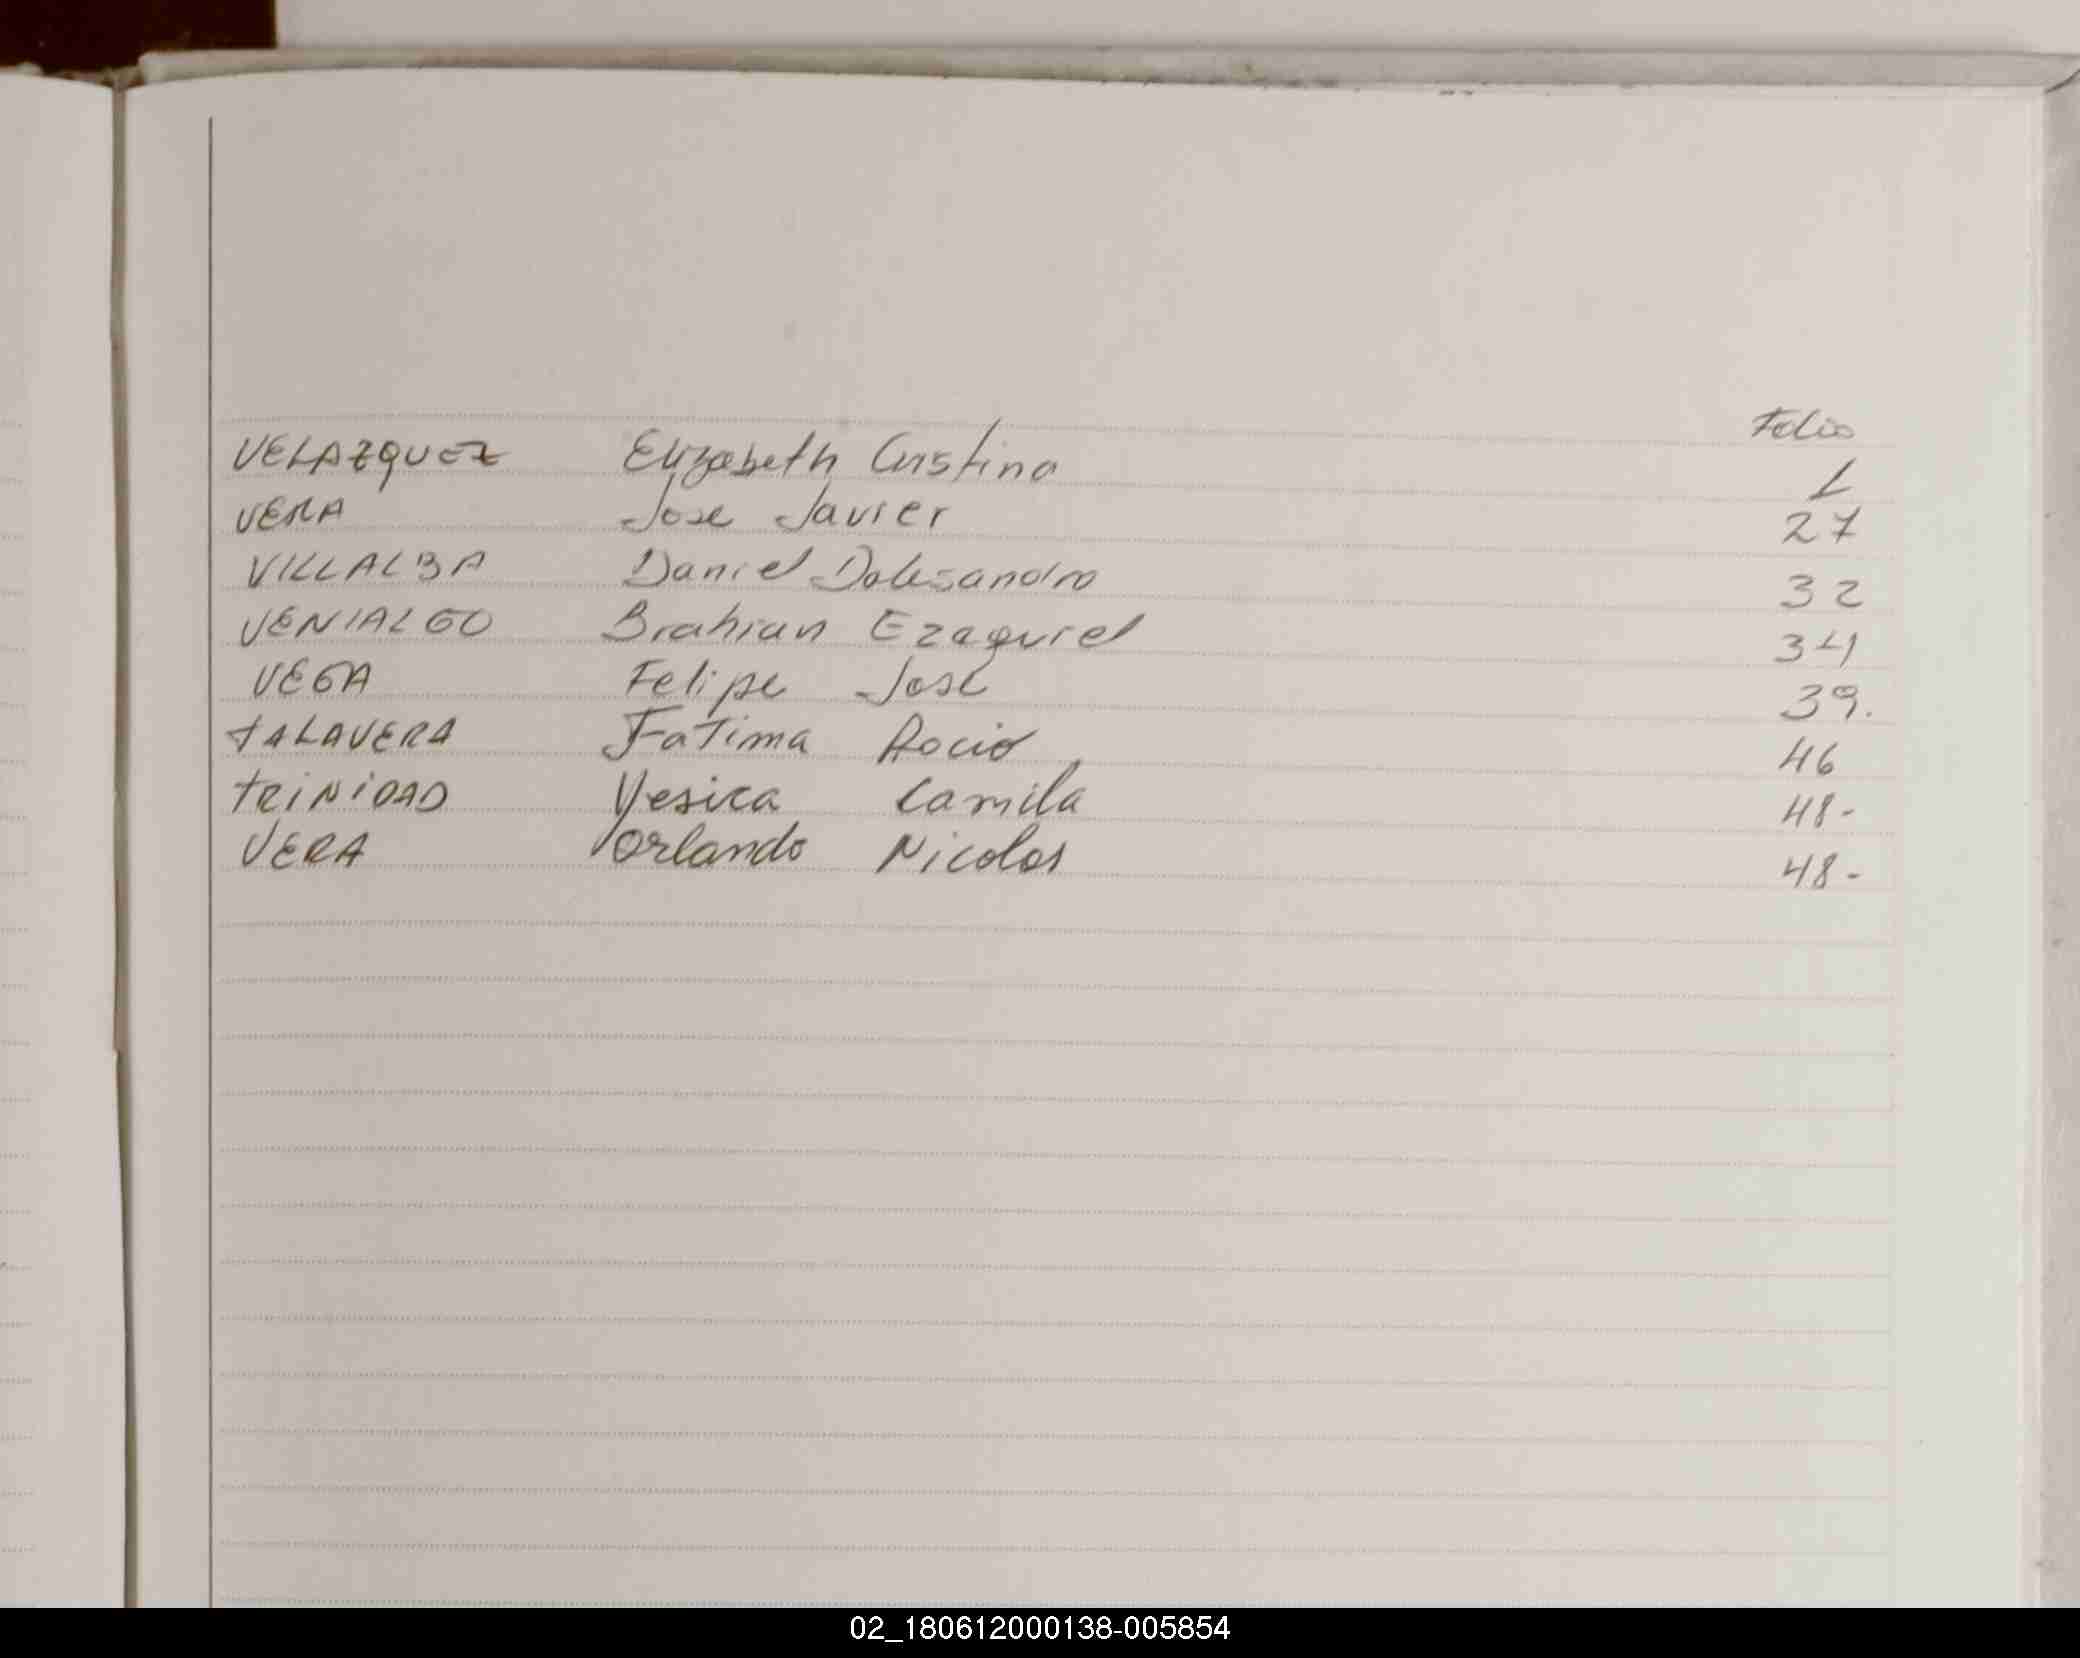 Folio
VELAZQUEZ Elizabeth Cristina 1
VERA Jose Javier 27
VILLALBA Daniel Dalesandro 32
VENIALGO Brahian Ezaquiel 34
VEGA Felipe Jose 39.
TALAVERA Fatima Rocio 46
TRINIDAD Yesica Camila 48-
VERA Orlando Nicolas 48-
02_180612000138-005854